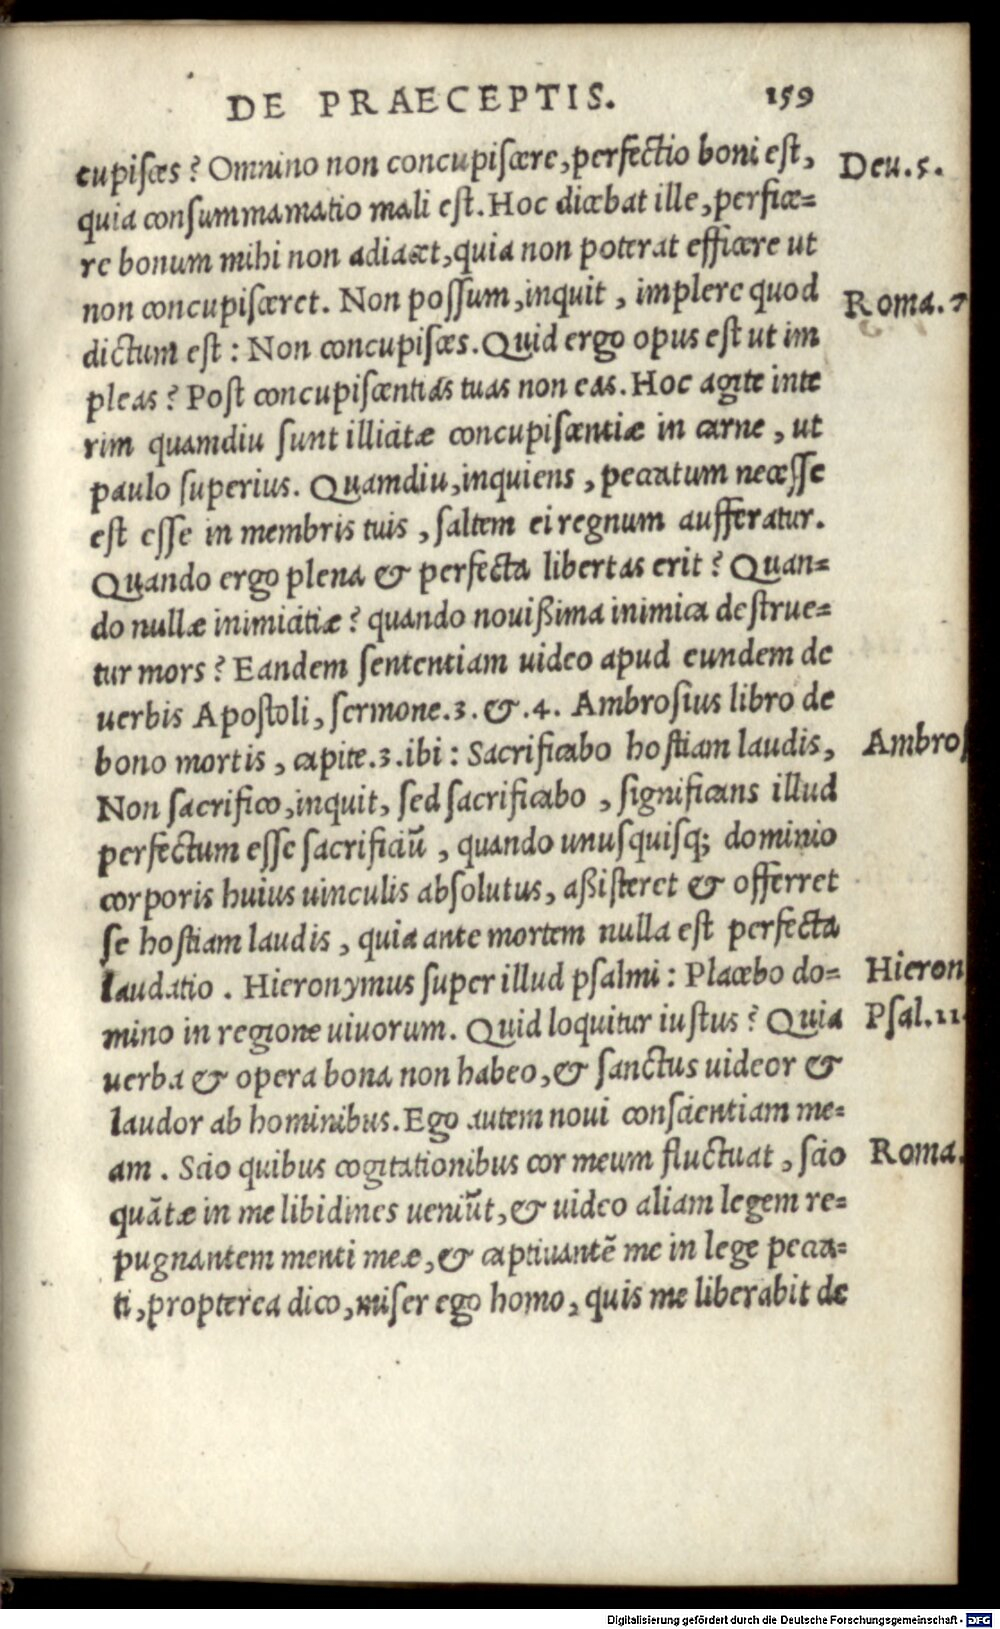 DE PRAECEPTIS. 159
cupisces? Omnino non concupiscere, perfectio boni est, Deu. 5.
quia consummamatio mali est. Hoc dicebat ille, perfice=
re bonum mihi non adiacet, quia non poterat efficere ut
non concupisceret. Non possum, inquit, implere quod Roma. 7
dictum est: Non concupisces. Quid ergo opus est ut im
pleas? Post concupiscentias tuas non eas. Hoc agite inte
rim quamdiu sunt illicitæ concupiscentiæ in carne, ut
paulo superius. Quamdiu, inquiens, peccatum necesse
est esse in membris tuis, saltem ei regnum aufferatur.
Quando ergo plena & perfecta libertas erit? Quan=
do nullæ inimicitiæ? quando nouißima inimica destrue=
tur mors? Eandem sententiam uideo apud eundem de
uerbis Apostoli, sermone.3. &.4. Ambrosius libro de
bono mortis, capite.3.ibi: Sacrificabo hostiam laudis, Ambros
Non sacrifico, inquit, sed sacrificabo, significans illud
perfectum esse sacrificiũ, quando unusquisq; dominio
corporis huius uinculis absolutus, aßisteret & offerret
se hostiam laudis, quia ante mortem nulla est perfecta
laudatio. Hieronymus super illud psalmi: Placebo do= Hieron
mino in regione uiuorum. Quid loquitur iustus? Quia Psal.11
uerba & opera bona non habeo, & sanctus uideor &
laudor ab hominibus. Ego autem noui conscientiam me=
am. Scio quibus cogitationibus cor meum fluctuat, scio Roma.
quãtæ in me libidines ueniũt, & uideo aliam legem re=
pugnantem menti meæ, & captiuantẽ me in lege pecca=
ti, propterea dico, miser ego homo, quis me liberabit de
Digitalisierung gefördert durch die Deutsche Forschungsgemeinschaft - DFG